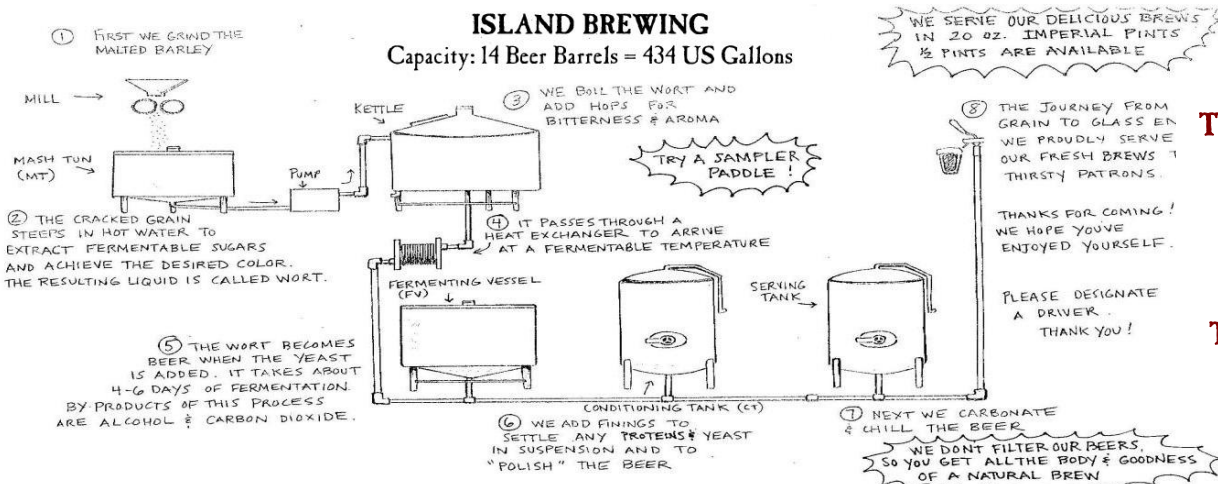 ISLAND BREWING
Capacity: 14 Beer Barrels = 434 US Gallons
① FIRST WE GRIND THE
MALTED BARLEY
MILL
MASH TUN
(MT)
② THE CRACKED GRAIN
STEEPS IN HOT WATER TO
EXTRACT FERMENTABLE SUGARS
AND ACHIEVE THE DESIRED COLOR.
THE RESULTING LIQUID IS CALLED WORT.
PUMP
KETTLE
③ WE BOIL THE WORT AND
ADD HOPS FOR
BITTERNESS & AROMA
TRY A SAMPLER
PADDLE!
④ IT PASSES THROUGH A
HEAT EXCHANGER TO ARRIVE
AT A FERMENTABLE TEMPERATURE
FERMENTING VESSEL
(FV)
⑤ THE WORT BECOMES
BEER WHEN THE YEAST
IS ADDED. IT TAKES ABOUT
4-6 DAYS OF FERMENTATION.
BY-PRODUCTS OF THIS PROCESS
ARE ALCOHOL & CARBON DIOXIDE.
CONDITIONING TANK (CT)
⑥ WE ADD FININGS TO
SETTLE ANY PROTEINS & YEAST
IN SUSPENSION AND TO
"POLISH" THE BEER
SERVING
TANK
⑦ NEXT WE CARBONATE
& CHILL THE BEER
WE DONT FILTER OUR BEERS,
SO YOU GET ALL THE BODY & GOODNESS
OF A NATURAL BREW
WE SERVE OUR DELICIOUS BREWS
IN 20 OZ. IMPERIAL PINTS
½ PINTS ARE AVAILABLE
⑧ THE JOURNEY FROM
GRAIN TO GLASS EN
WE PROUDLY SERVE
OUR FRESH BREWS T
THIRSTY PATRONS.
THANKS FOR COMING!
WE HOPE YOU'VE
ENJOYED YOURSELF.
PLEASE DESIGNATE
A DRIVER.
THANK YOU!
T
T